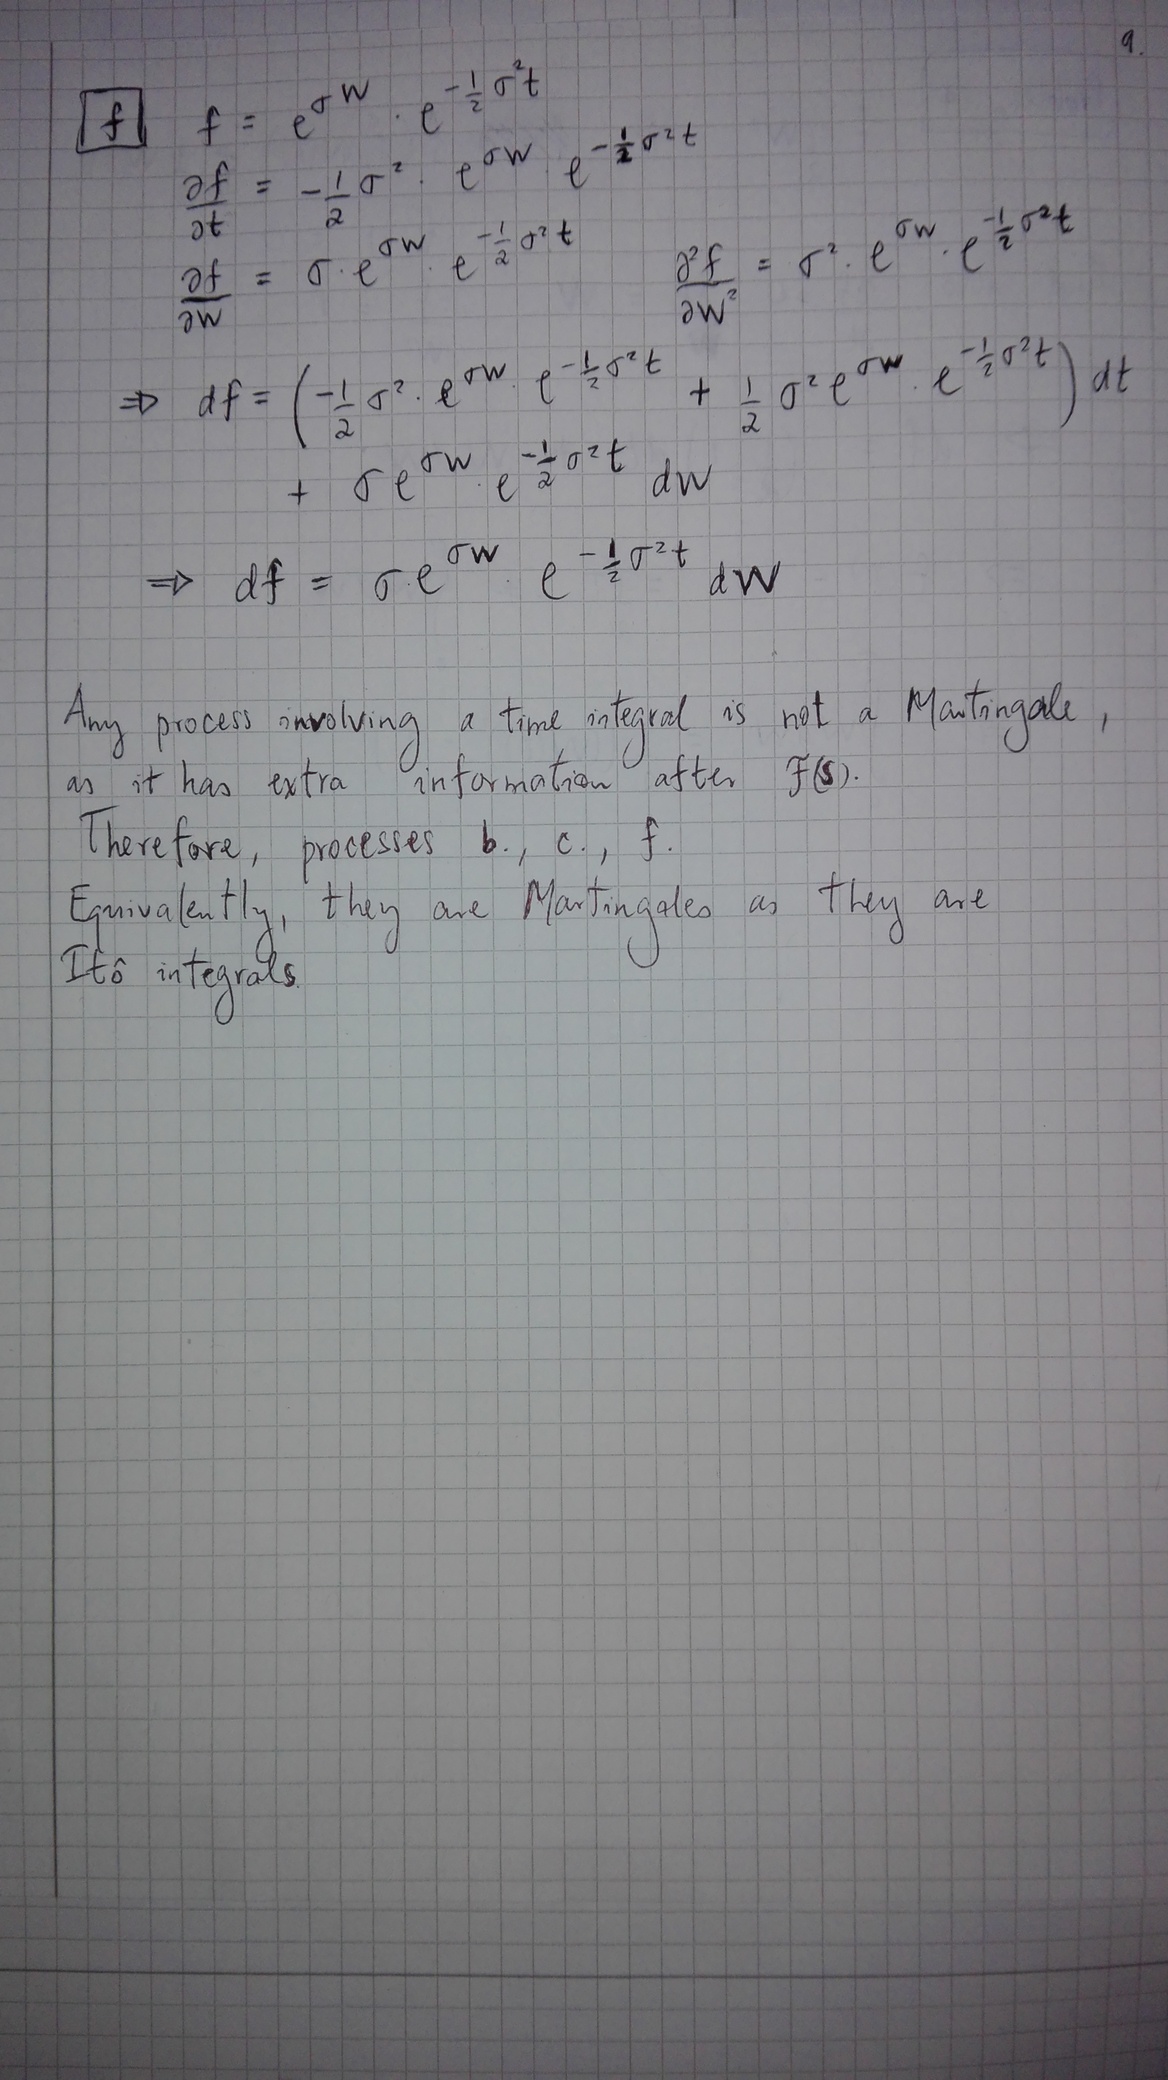 9.
f f = e^{σW} · e^{-\frac{1}{2}σ²t}
\frac{∂f}{∂t} = -\frac{1}{2}σ² · e^{σW} · e^{-\frac{1}{2}σ²t}
\frac{∂f}{∂W} = σ · e^{σW} · e^{-\frac{1}{2}σ²t} \frac{∂²f}{∂W²} = σ² · e^{σW} · e^{-\frac{1}{2}σ²t}
⇒ df = (-\frac{1}{2}σ² · e^{σW} · e^{-\frac{1}{2}σ²t} + \frac{1}{2}σ² e^{σW} · e^{-\frac{1}{2}σ²t}) dt
+ σe^{σW} · e^{-\frac{1}{2}σ²t} dW
⇒ df = σ·e^{σW} · e^{-\frac{1}{2}σ²t} dW
Any process involving a time integral is not a Martingale,
as it has extra information after F(s).
Therefore, processes b., c., f.
Equivalently, they are Martingales as they are
Itô integrals.